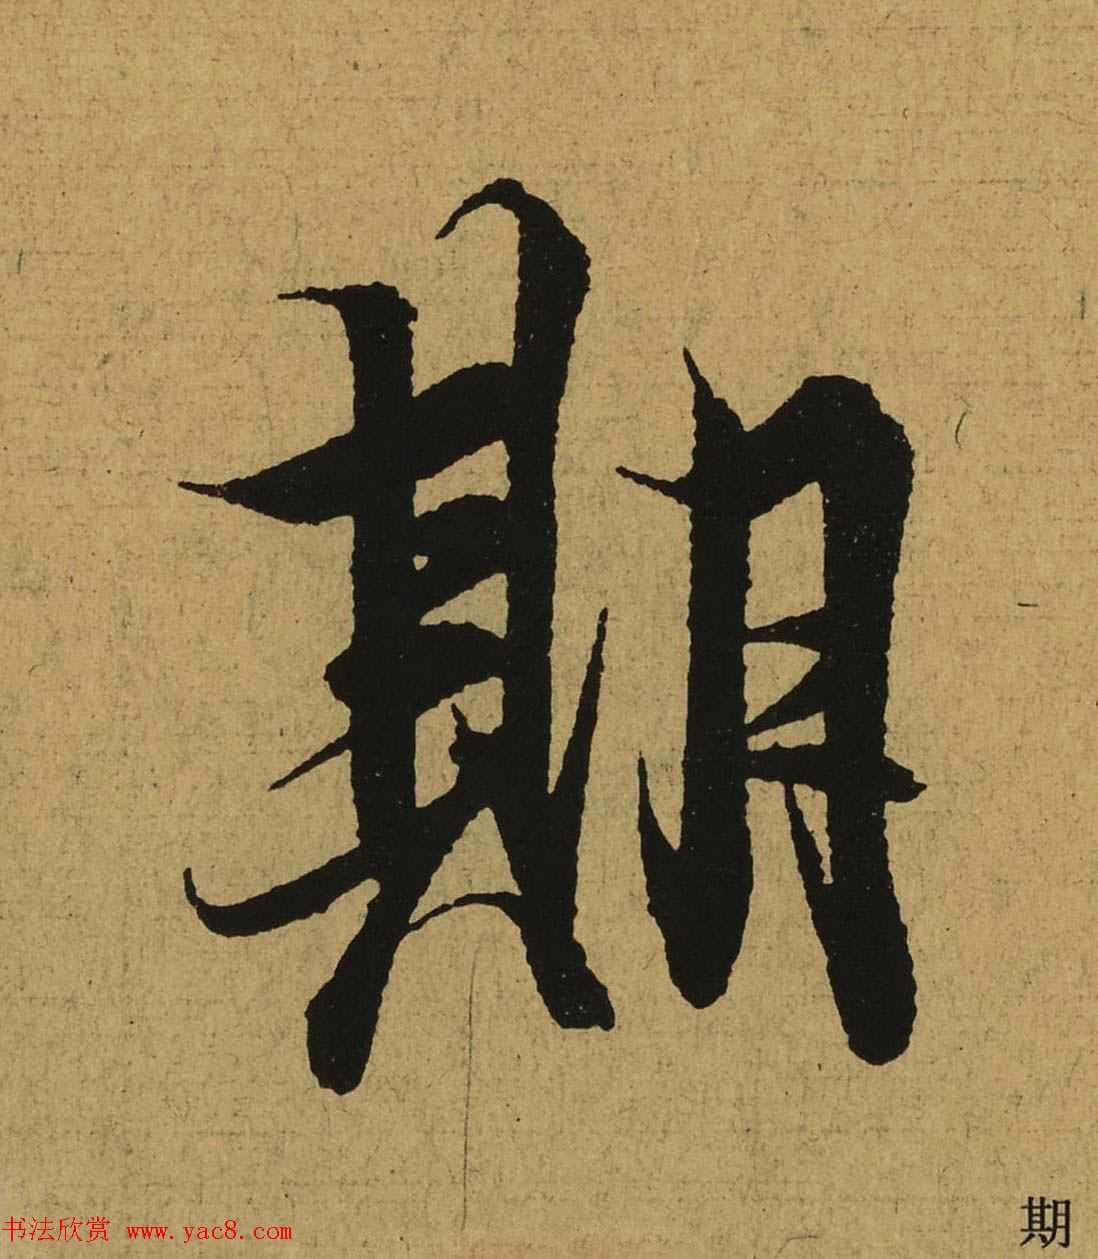 期
书法欣赏 www.yac8.com
期